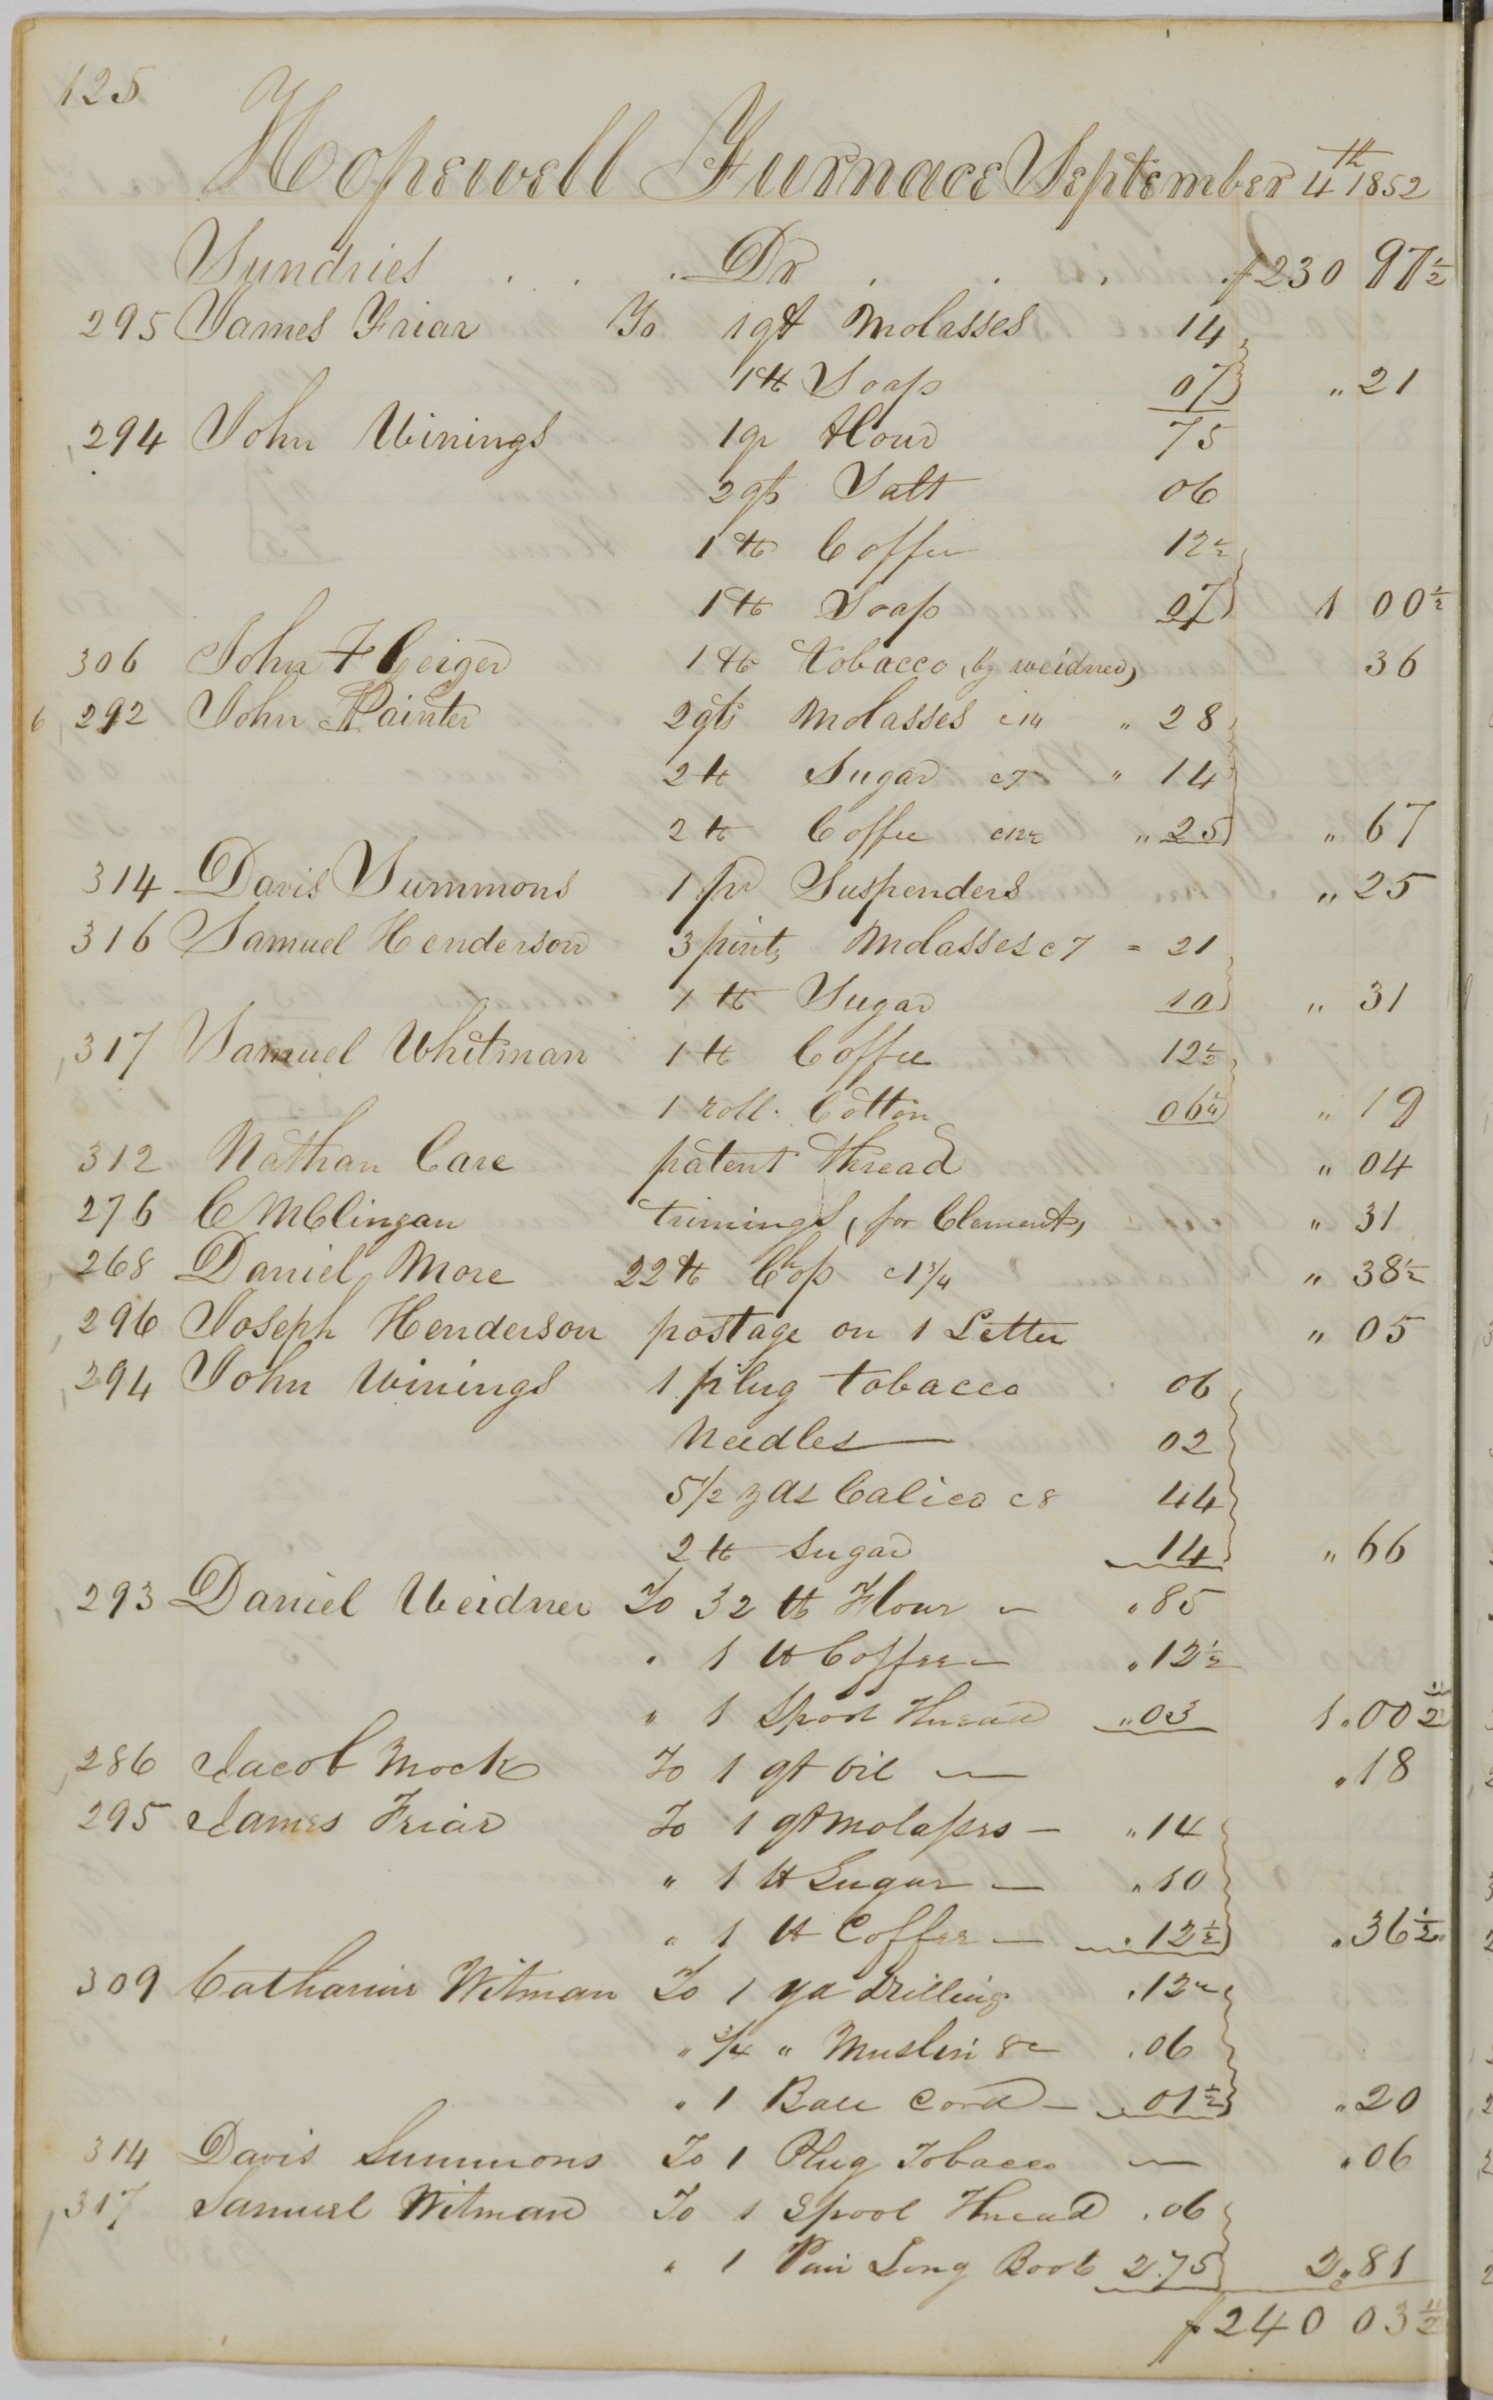 125
Hopewell Furnace September 4th 1852
Sundries . . . . Dr . . . . $230 97 1/2
295 James Friar To 1 qt Molasses 14
1 lb Soap 07 " 21
294 John Winings 1 qr Flour 75
2 qts Salt 06
1 lb Coffee 12 1/2
1 lb Soap 07 1 00 1/2
306 John F Geiger 1 lb tobacco (by weidner) 36
6 292 John Painter 2 qts Molasses c14 " 28
2 lb Sugar c7 " 14
2 lb Coffee c12 1/2 " 25 " 67
314 Davis Summons 1 pr Suspenders " 25
316 Samuel Henderson 3 pints Molasses c7 = 21
1 lb Sugar 10 " 31
317 Samuel Whitman 1 lb Coffee 12 1/2
1 roll Cotton 06 1/4 " 19
312 Nathan Care patent thread " 04
276 C M Clingan trimings (for Clement) " 31
268 Daniel More 22 lb Chop c1 3/4 " 38 1/2
296 Joseph Henderson postage on 1 Letter " 05
294 John Winings 1 plug tobacco 06
Needles — 02
5 1/2 yds Calico c8 44
2 lb Sugar 14 " 66
293 Daniel Weidner To 32 lb Flour — " 85
" 1 lb Coffee — " 12 1/2
" 1 Spool Thread " 03 1.00 1/2
286 Jacob Mock To 1 qt Oil — " 18
295 James Friar To 1 qt Molasses — " 14
" 1 lb Sugar — " 10
" 1 lb Coffee — . 12 1/2 . 36 1/2
309 Catharine Witman To 1 yd Drilling . 12 1/2
" 3/4 " Muslin 8c . 06
" 1 Ball Cord — . 01 1/2 " 20
314 Davis Summons To 1 Plug Tobacco — . 06
317 Samuel Witman To 1 Spool Thread . 06
" 1 Pair Long Boots 2.75 2.81
$240 03 1/2